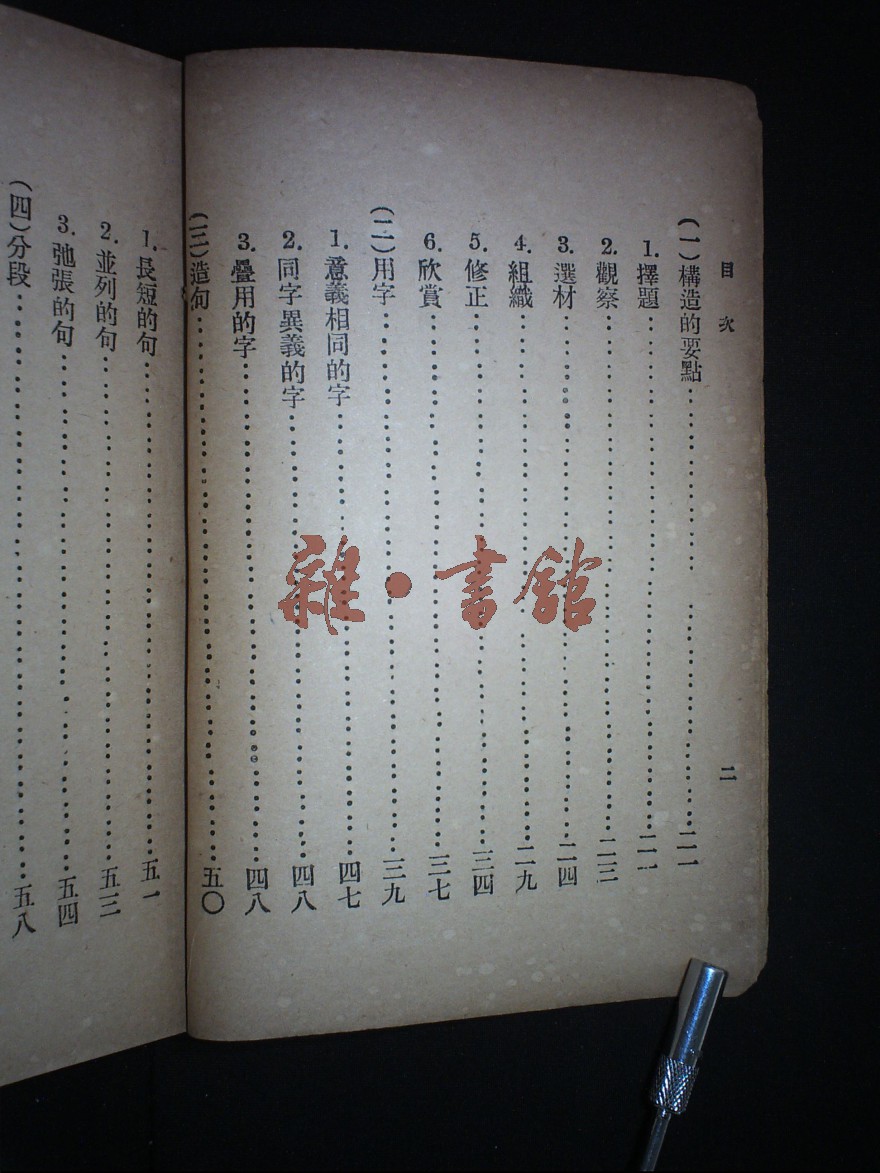 目次
二
(一)構造的要點……二一
1. 擇題……二一
2. 觀察……二三
3. 選材……二四
4. 組織……二九
5. 修正……三四
6. 欣賞……三七
(二)用字……三九
1. 意義相同的字……四七
2. 同字異義的字……四八
3. 疊用的字……四八
(三)造句……五〇
1. 長短的句……五一
2. 並列的句……五三
3. 弛張的句……五四
(四)分段……五八
雜·書館